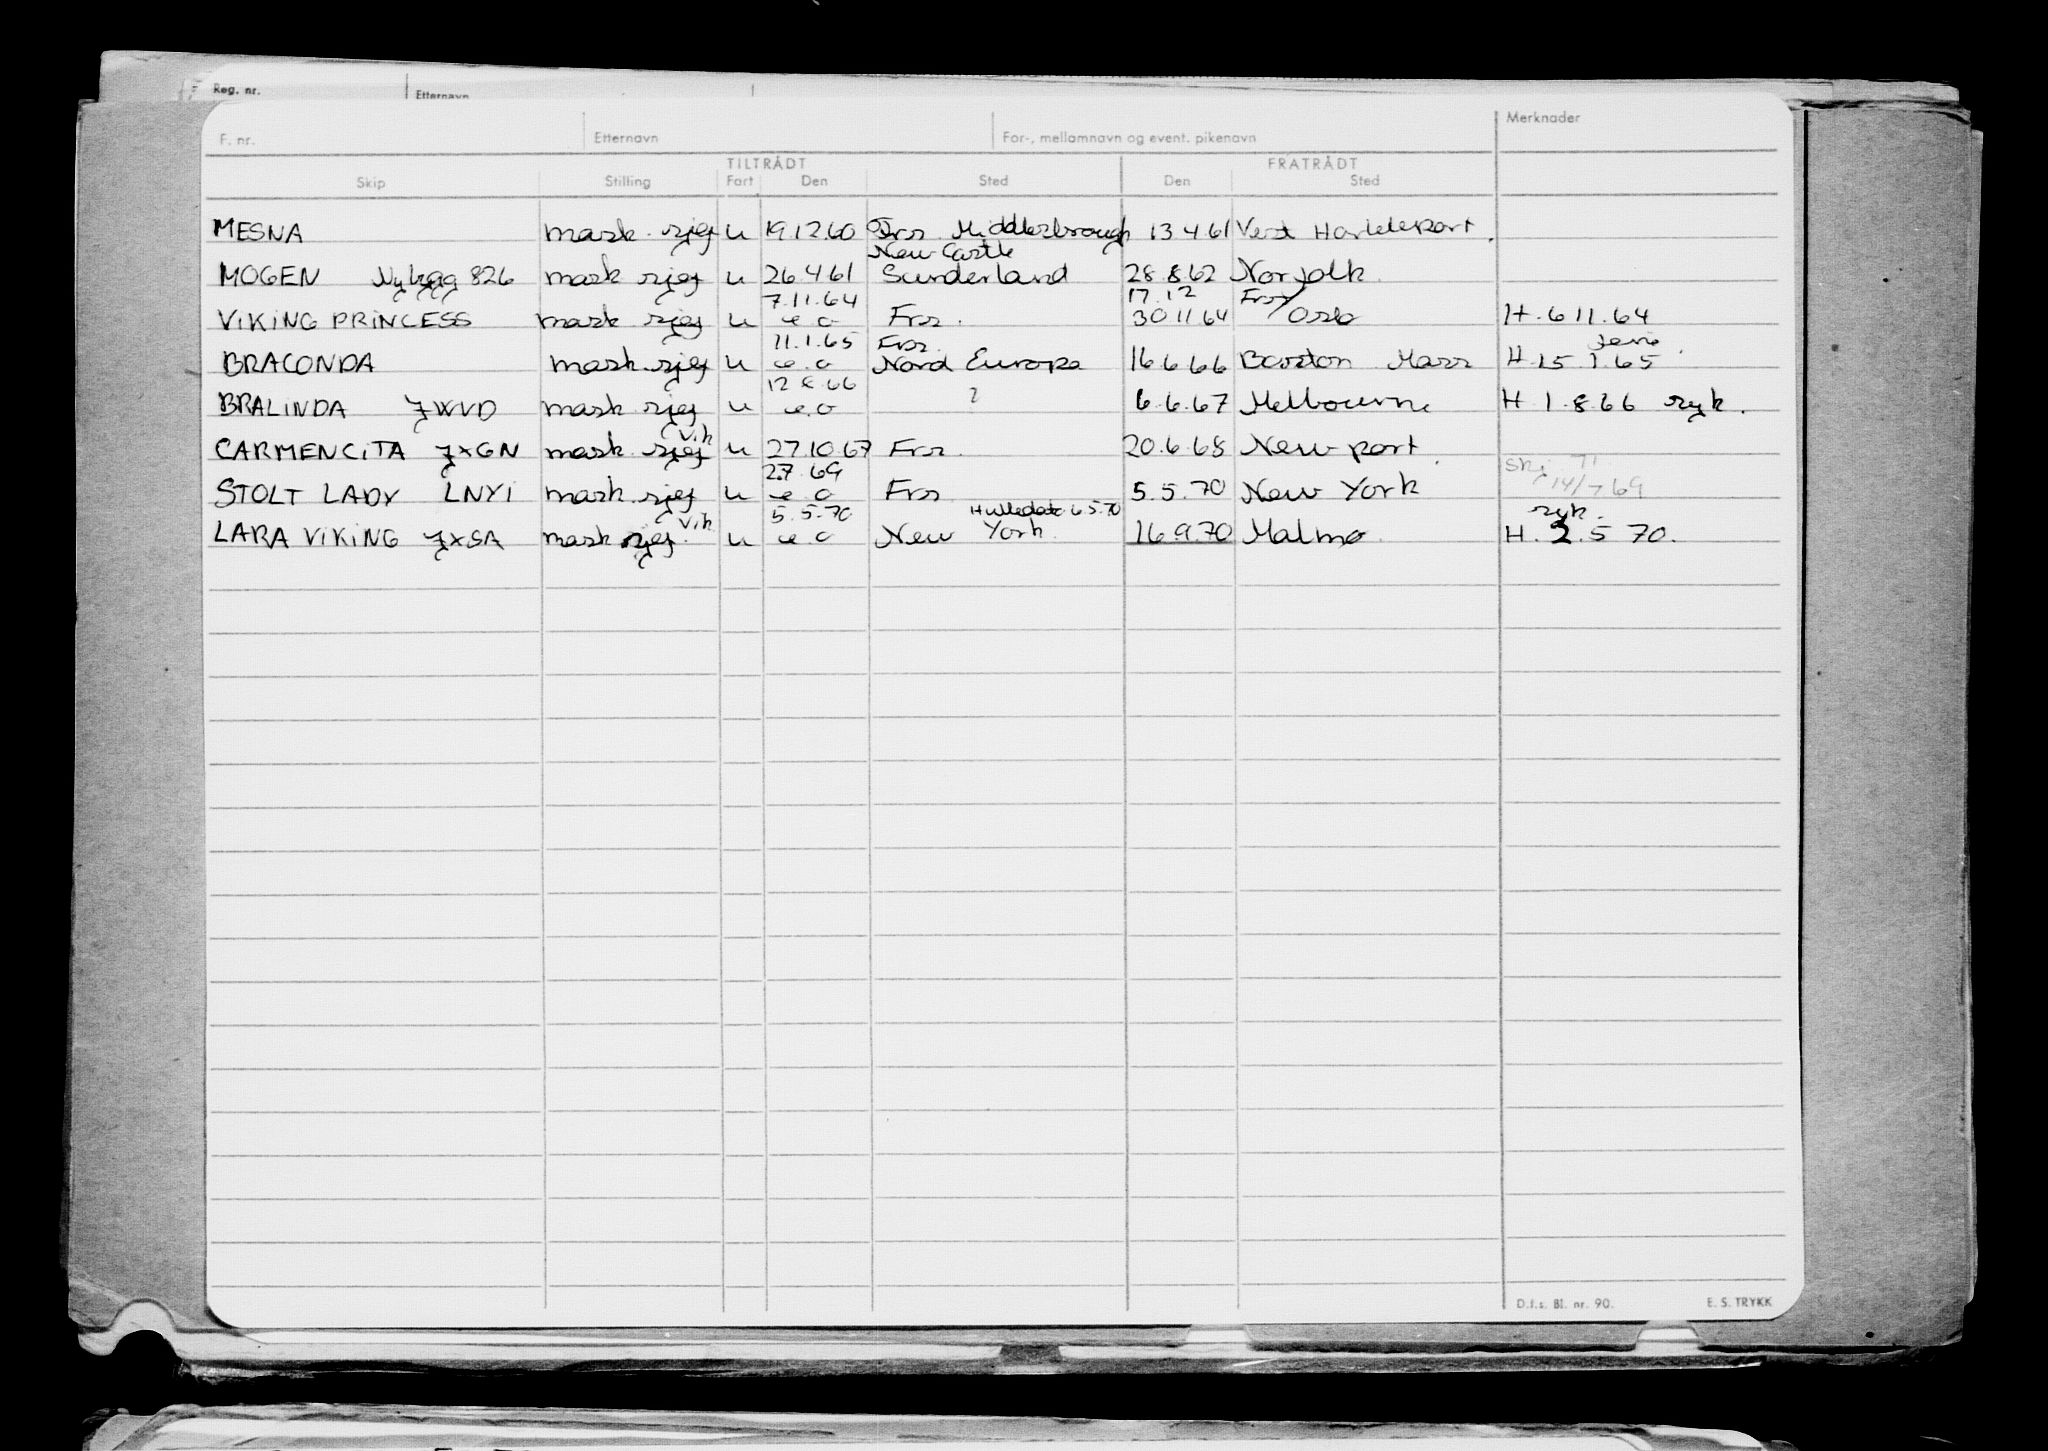 Reg. nr. Etternavn
F. nr. Etternavn For-, mellomnavn og event. pikenavn Merknader
TILTRÅDT FRATRÅDT
Skip Stilling Fart Den Sted Den Sted
MESNA mask. sjef u 19.12.60 Frs. Middlesbrough 13 4 61 Vest Hartlepool.
New Castle
MOGEN Nybygg 826 mask sjef u 26 4 61 Sunderland 28 8.62 Norfolk.
7.11.64 17.12 Frs/
VIKING PRINCESS mask sjef u e o Frs. 30 11 64 Oslo H. 6 11. 64
11.1.65 Frs.
BRACONDA mask. sjef u e. o Nord Europa 16 6 66 Boston Mass H. 15 1. 65
12 8.66
BRALINDA JWVD mask sjef u e. o ? 6.6.67 Melbourne H. 1. 8. 66 syk.
vik
CARMENCITA JXGN mask. sjef u 27.10.67 Frs. 20.6.68 Newport.
2.7.69
STOLT LADY LNYI mask. sjef u e o Frs 5.5.70 New York 14/7 69
vik 5.5.70 Hulledato 6 5.70 syk.
LARA VIKING JXSA mask sjef. u e o New York. 16 9.70 Malmø. H. 2. 5 70.
D.f.s. Bl. nr. 90. E. S. TRYKK